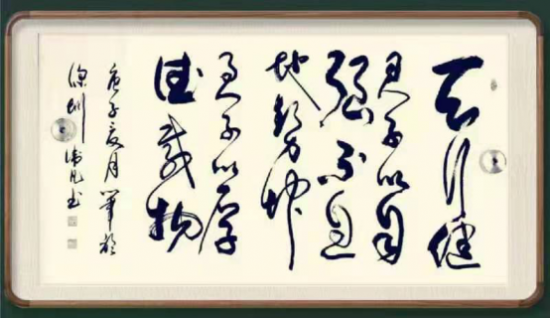 天行健
君子以自
强不息
地势坤
君子以厚
德载物
庚子夏月筆於
深圳 凡书